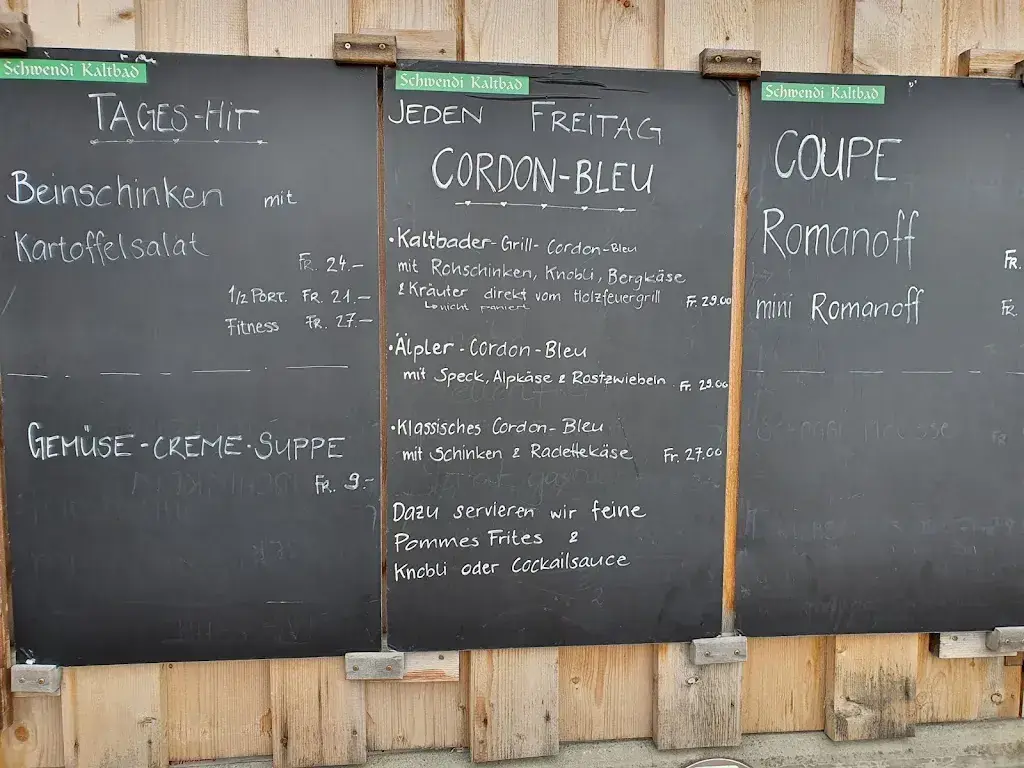 Schwendi Kaltbad
TAGES-HIT
Beinschinken mit
Kartoffelsalat
FR. 24.-
1/2 PORT. FR. 21.-
Fitness FR. 27.-
GEMÜSE-CREME-SUPPE
FR. 9.-
Schwendi Kaltbad
JEDEN FREITAG
CORDON-BLEU
• Kaltbader-Grill-Cordon-Bleu
mit Rohschinken, Knobli, Bergkäse
& Kräuter direkt vom Holzfeuergrill Fr. 29.00
nicht paniert
• Älpler-Cordon-Bleu
mit Speck, Alpkäse & Röstzwiebeln Fr. 29.00
• Klassisches Cordon-Bleu
mit Schinken & Raclettekäse Fr. 27.00
Dazu servieren wir feine
Pommes Frites &
Knobli oder Cockailsauce
Schwendi Kaltbad
COUPE
Romanoff
FR.
mini Romanoff FR.